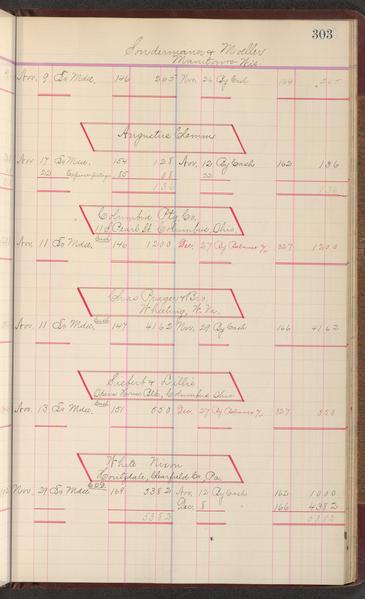 303
Sondermann & Moeller
Manitowoc Wis
Nov. 9 To Mdse. 146 265 Nov. 26 By Cash 164 265
Augustus Clemm
Nov 17 To Mdse. 154 128 Nov. 12 By Cash 162 136
22 85 08 22
136 136
Columbia Ptg. Co.
Pearl St. Columbus, Ohio.
Nov. 11 To Mdse. 146 1200 Dec. 27 By Balance 327 1200
Chas Prager & Bro.
Wheeling, W. Va.
Nov. 11 To Mdse. 147 4162 Nov. 29 By Cash 166 4162
Siefert & Lillie
Opera House Blk., Columbus Ohio.
Nov. 13 To Mdse. 151 550 Dec. 27 By Balance 327 550
White Nixon
Houtzdale, Clearfield Co., Pa.
Nov. 29 To Mdse. 168 5382 Nov. 12 By Cash 162 1000
Dec. 8 " 166 4382
5382 5382